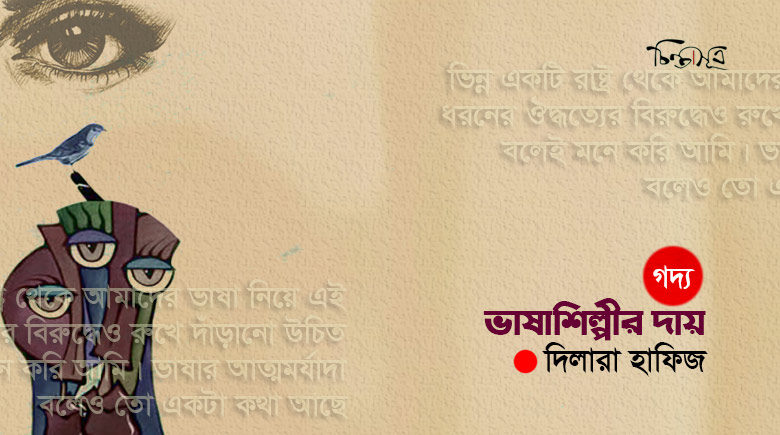 চিন্তাসূত্র
ভিন্ন একটি রাষ্ট্র থেকে আমাদের
ধরনের ঔদ্ধত্যের বিরুদ্ধেও রুখে
বলেই মনে করি আমি।
বলেও তো
গদ্য
ভাষাশিল্পীর দায়
দিলারা হাফিজ
থেকে আমাদের ভাষা নিয়ে এই
বিরুদ্ধেও রুখে দাঁড়ানো উচিত
করি আমি। ভাষার আত্মমর্যাদা
বলেও তো একটা কথা আছে